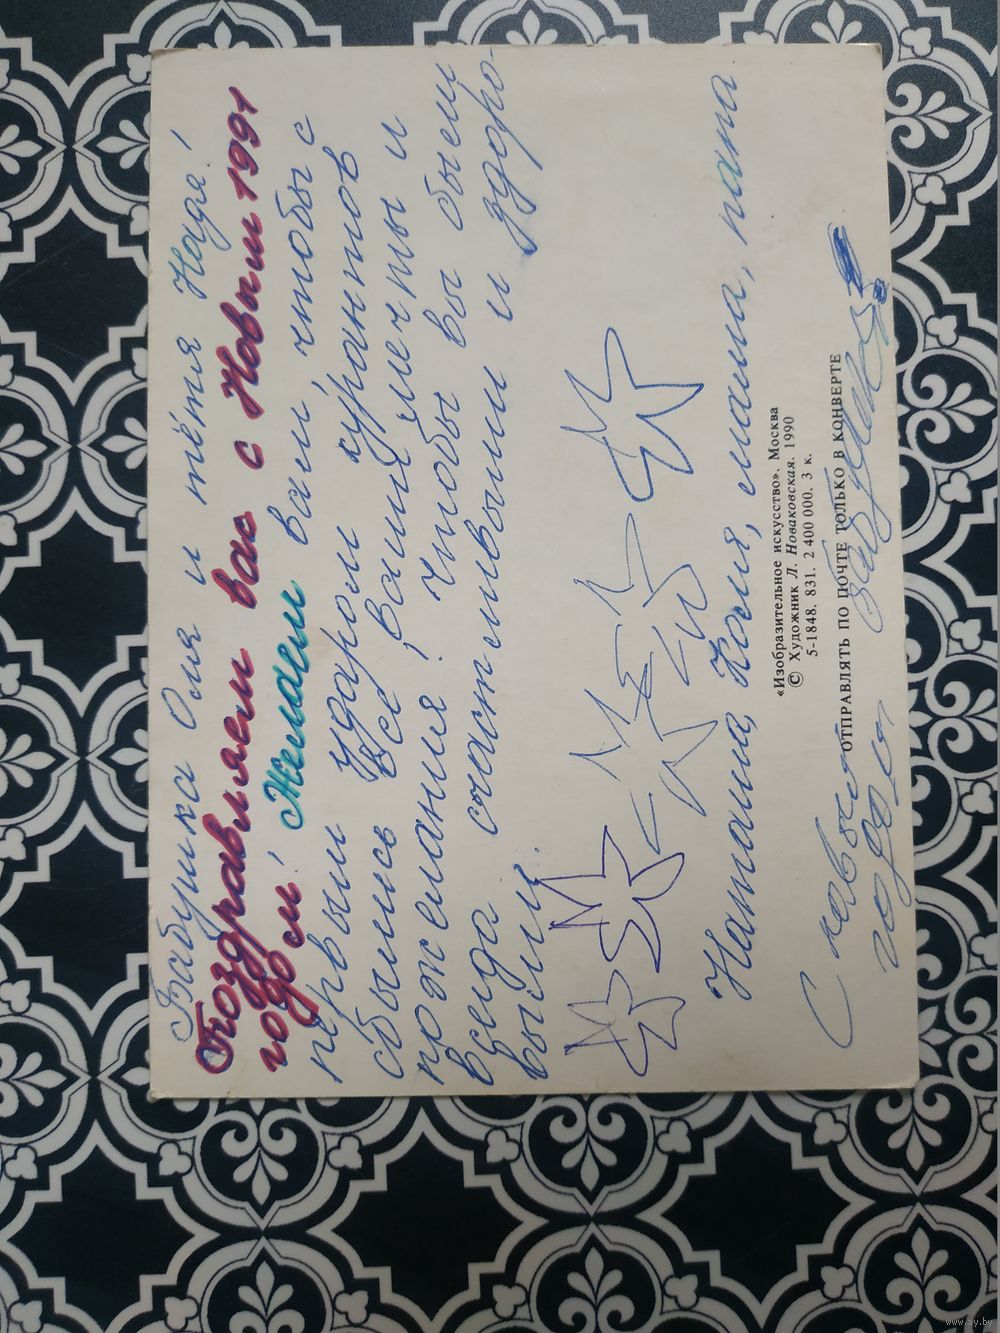 Бабушка Оля и тётя Надя!
Поздравляем вас с Новым 1991
годом! Желаем вам, чтобы с
первым ударом курантов
сбылись все ваши мечты и
пожелания! Чтобы вы были
всегда счастливыми и здоро-
выми.
Наташа, Коля, мама, папа
«Изобразительное искусство». Москва
© Художник Л. Новаковская. 1990
5-1848. 831. 2 400 000. 3 к.
ОТПРАВЛЯТЬ ПО ПОЧТЕ ТОЛЬКО В КОНВЕРТЕ
С новым
годом
www.ay.by